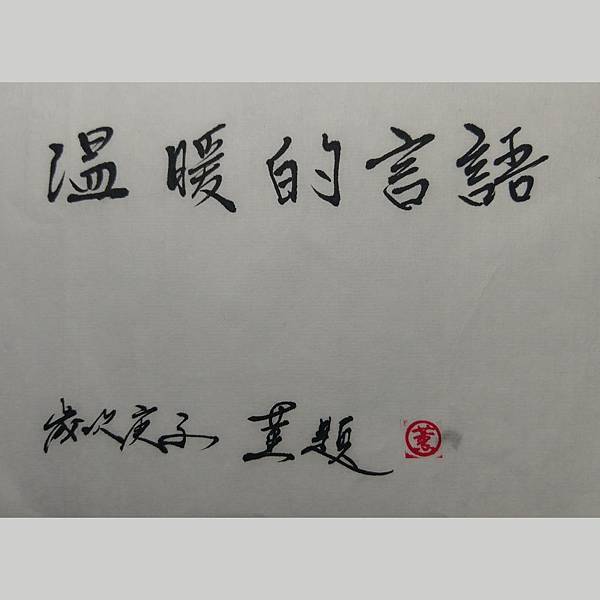 溫暖的言語
歲次庚子 董題